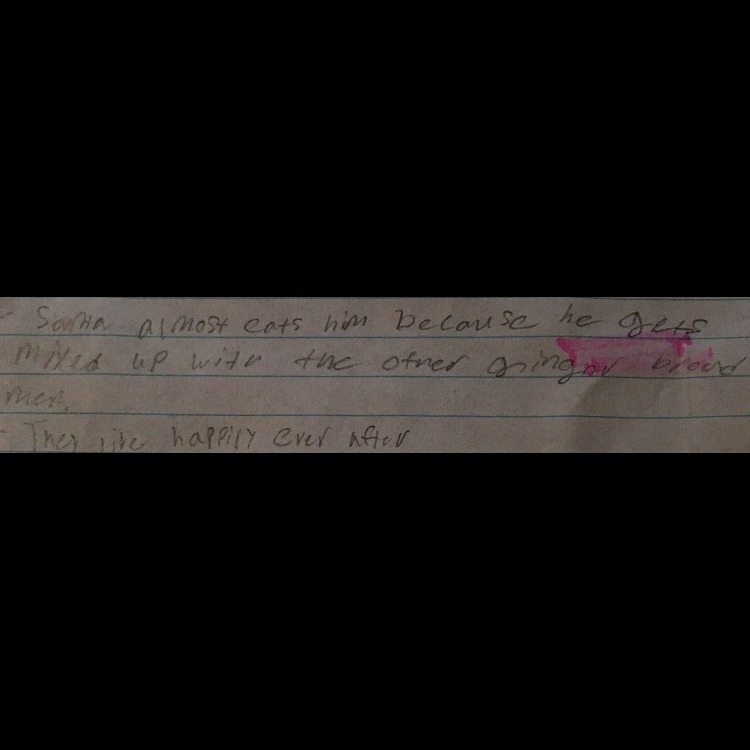 - Santa almost eats him because he gets
mixed up with the other gingar bread
men.
- They live happily ever after